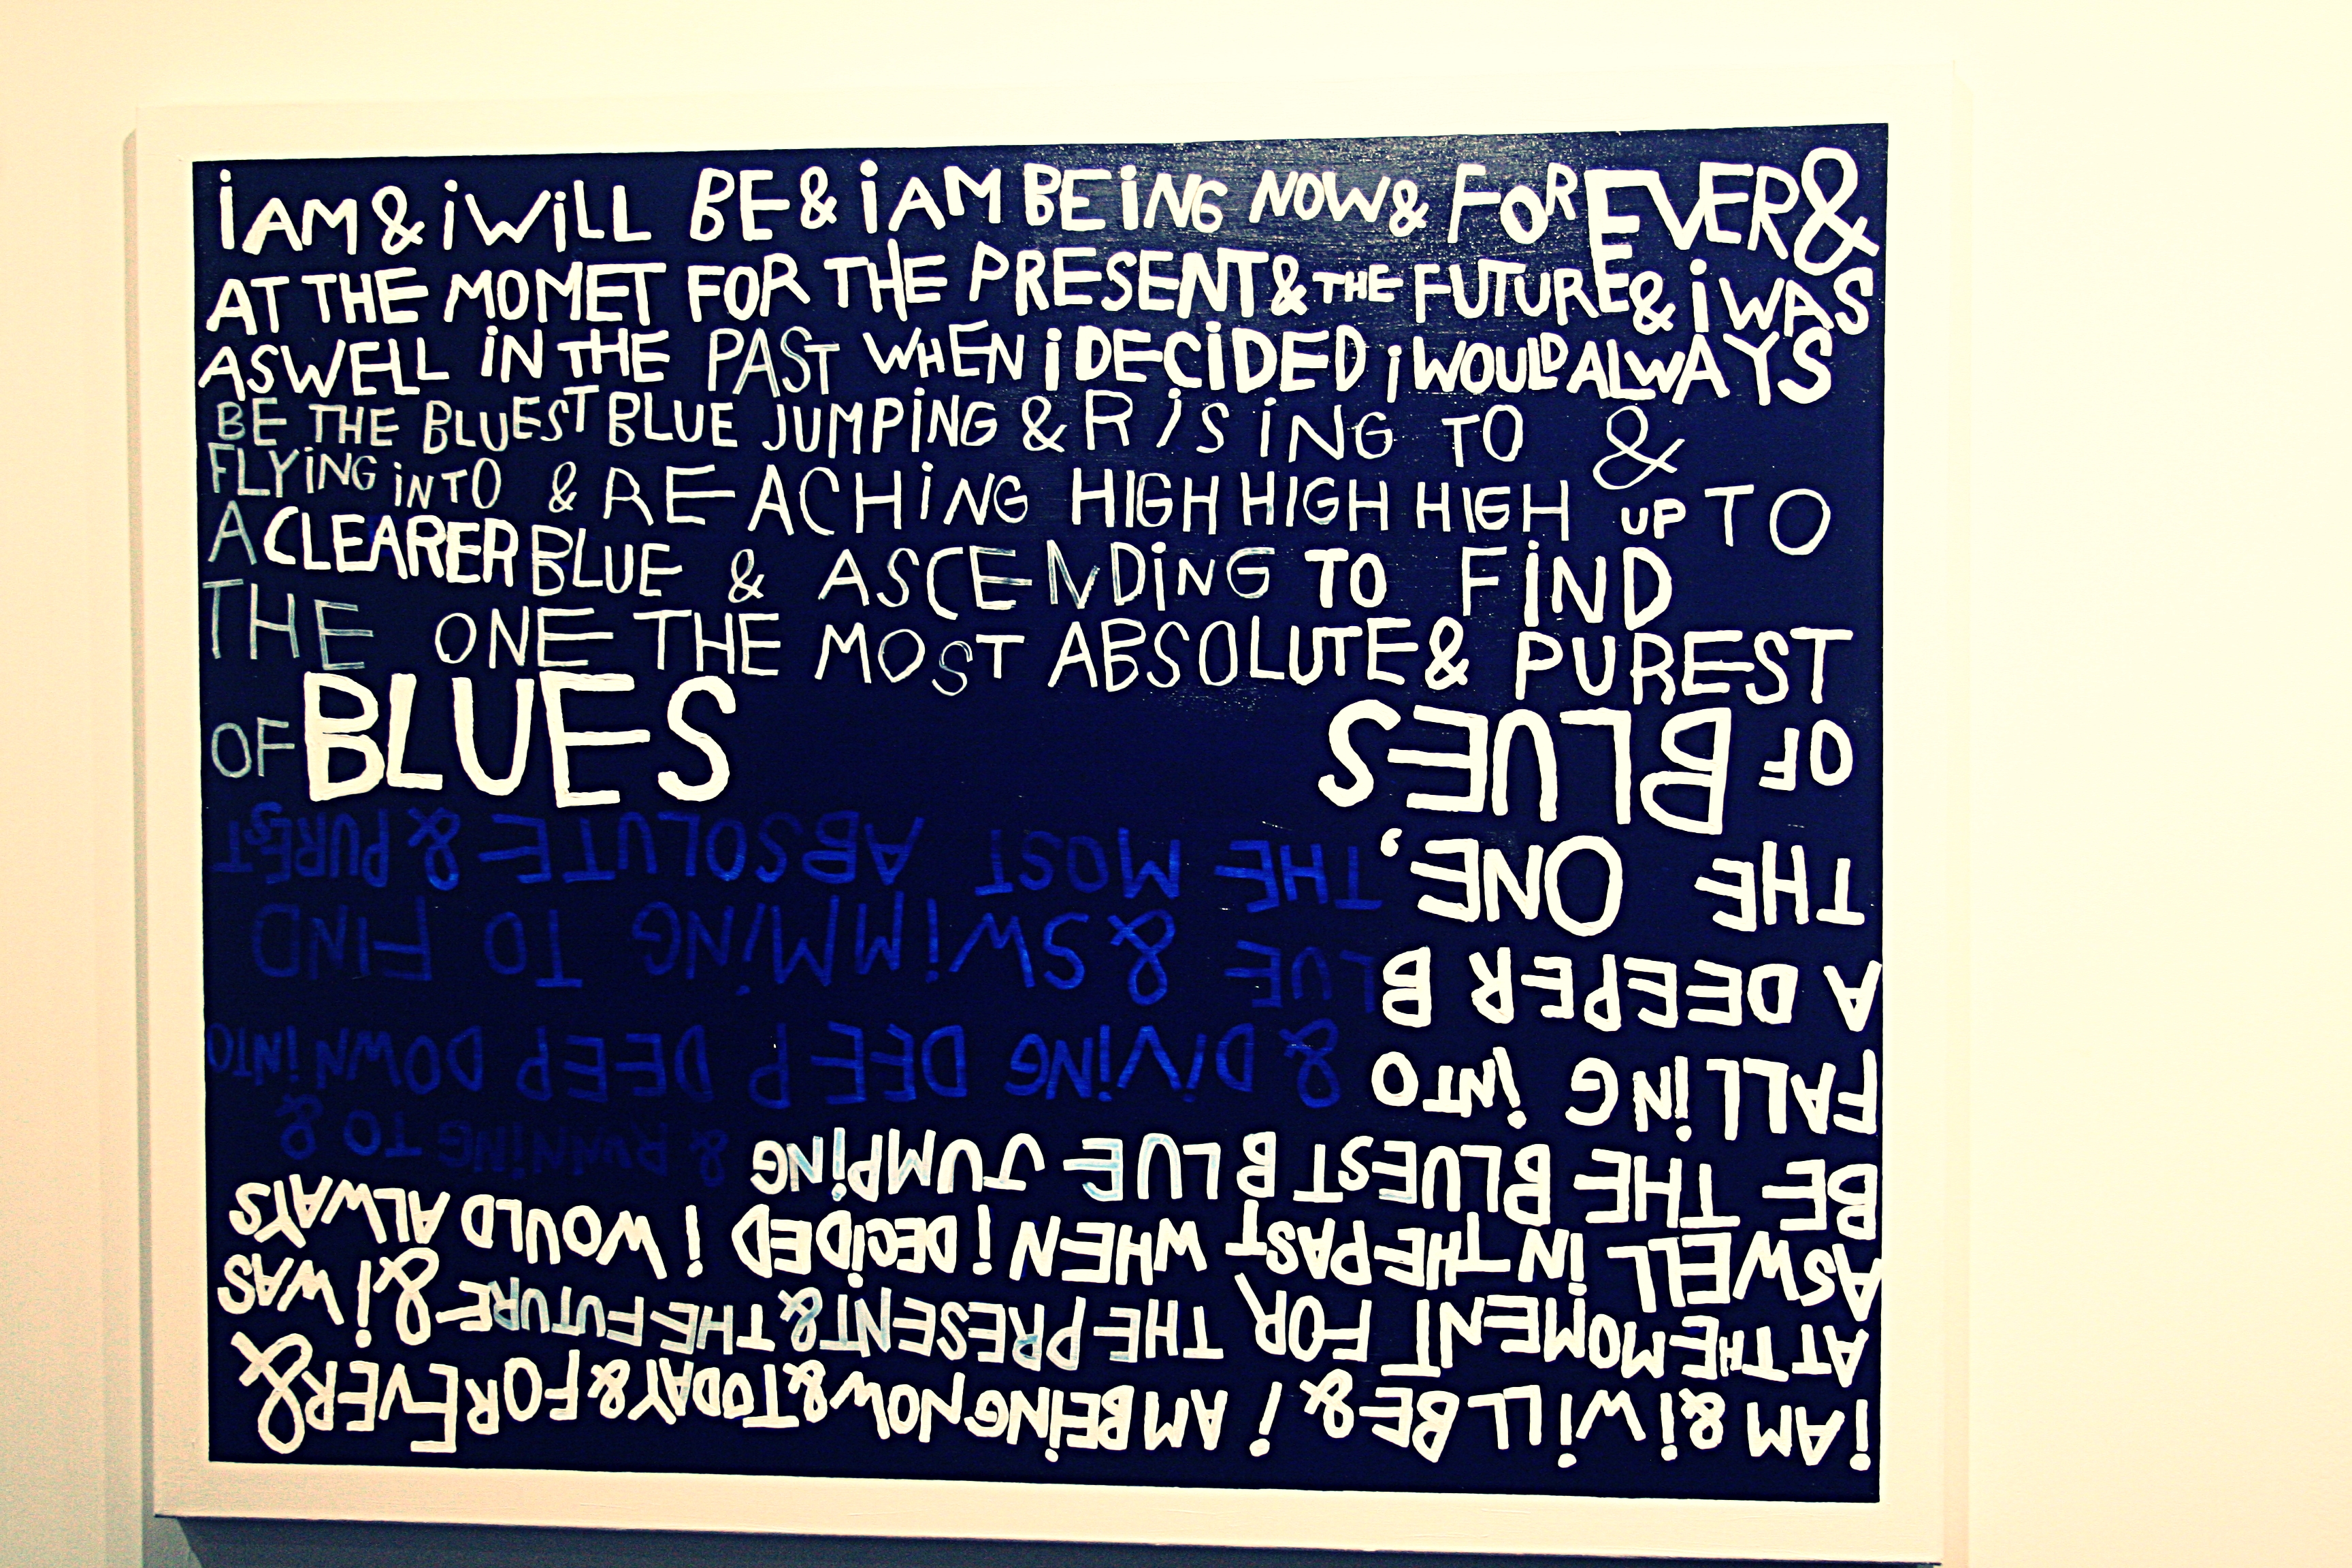 iAM & i WiLL BE & iAM BEiNG NOW & FOREVER &
AT THE MOMET FOR THE PRESENT & THE FUTURE & i WAS
ASWELL iN THE PAST WHEN i DECiDED i WOULD ALWAYS
BE THE BLUEST BLUE JUMPiNG & RiSiNG TO &
FLYiNG iNTO & REACHiNG HIGH HIGH HIGH UP TO
A CLEARER BLUE & ASCENDiNG TO FiND
THE ONE THE MOST ABSOLUTE & PUREST
OF BLUES
iAM & i WiLL BE & i AM BEiNG NOW & TODAY & FOREVER &
AT THE MOMENT FOR THE PRESENT & THE FUTURE & i WAS
ASWELL iN THE PAST WHEN i DECiDED i WOULD ALWAYS
BE THE BLUEST BLUE JUMPiNG & RUNNiNG TO &
FALLiNG iNTO & DiViNG DEEP DEEP DEEP DOWN iNTO
A DEEPER BLUE & SWiMMiNG TO FIND
THE ONE, THE MOST ABSOLUTE & PUREST
OF BLUES